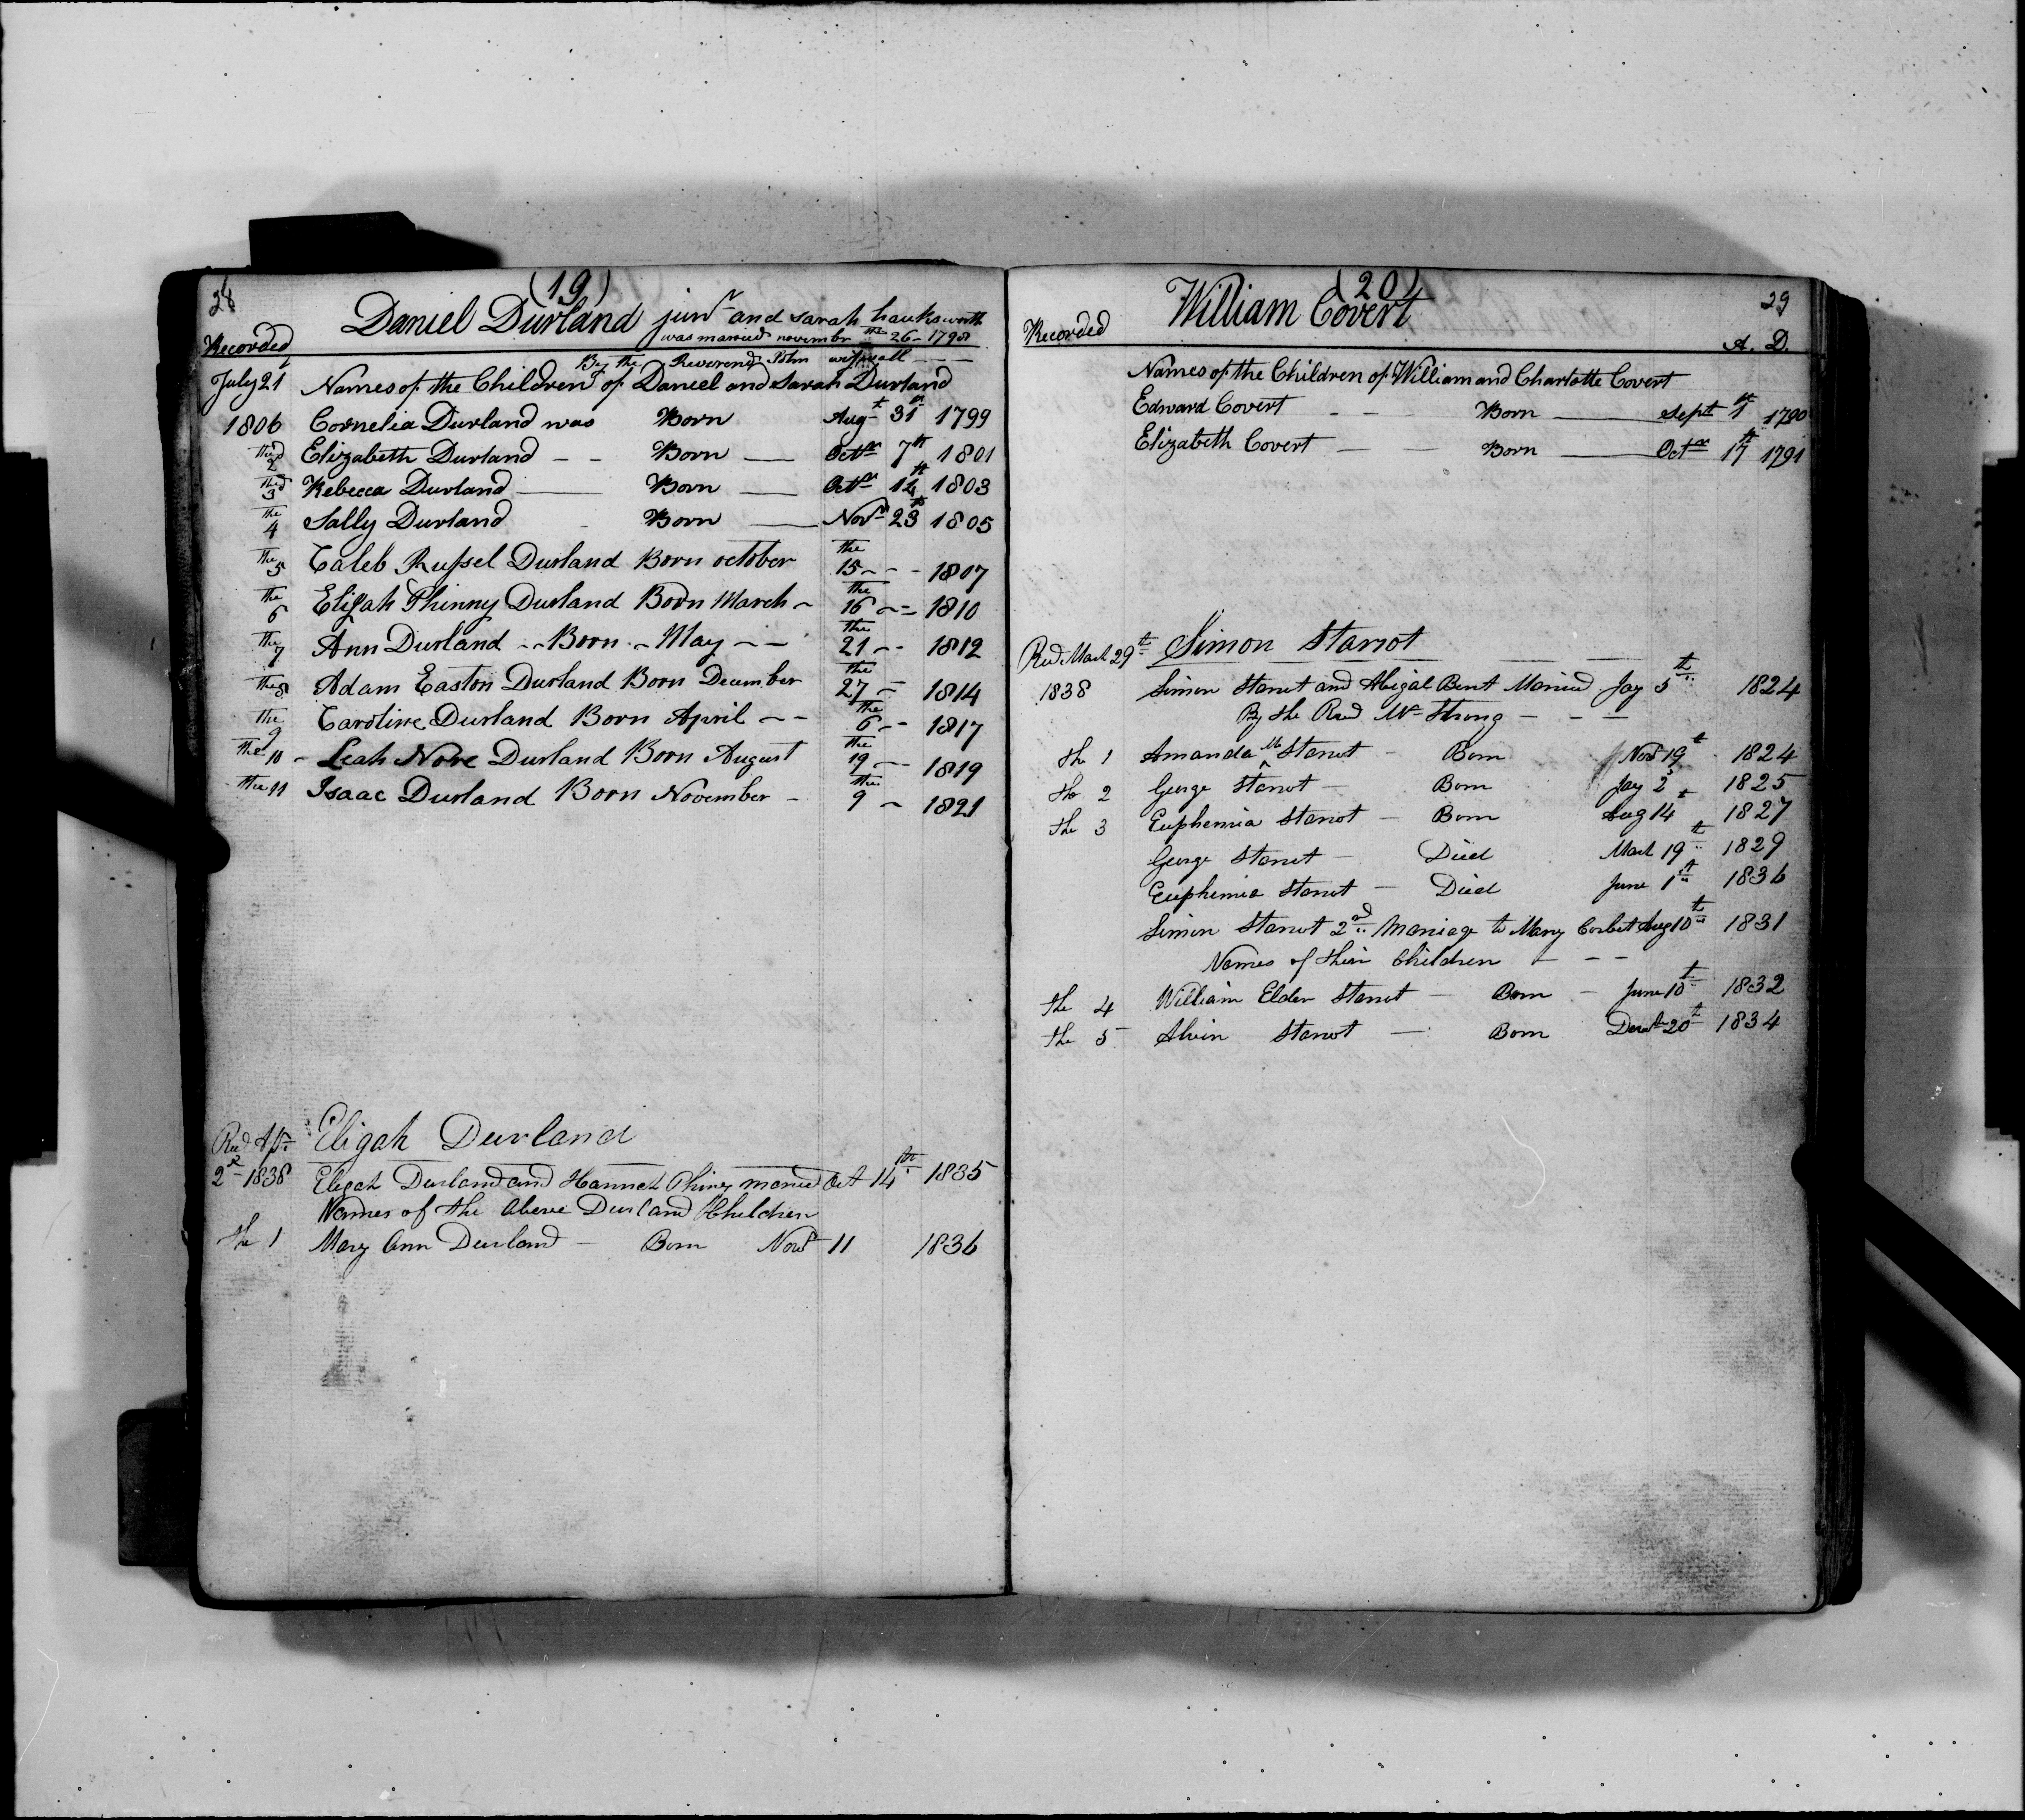 28 (19)
Daniel Durland junr and Sarah hauksworth
Recorded was married novembr the 26 - 1798
By the Reverend John
July 21 Names of the Children of Daniel and Sarah Durland
1806 Cornelia Durland was Born Augt 31st 1799
the 2d Elizabeth Durland - - Born — Octr 7th 1801
the 3d Rebecca Durland — Born — Octr 14th 1803
the 4 Sally Durland - Born — Novr 23d 1805
the 5 Caleb Russel Durland Born october the 15 - - - 1807
the 6 Elijah Phinny Durland Born March - the 16 - - 1810
the 7 Ann Durland - - Born - May - - the 21 - - 1812
the 8 Adam Easton Durland Born December the 27 - 1814
the 9 Caroline Durland Born April - - the 6 - - 1817
the 10 - Leah Nore Durland Born August the 19 - - 1819
the 11 Isaac Durland Born November - the 9 - 1821
Recd Apr Eligah Durland
2d 1838 Eligah Durland and Hannah Phiney maried Oct 14th 1835
Names of the above Durland Children
the 1 Mary Ann Durland - Born Novr 11 1836
(20) 29
William Covert
Recorded A. D.
Names of the Children of William and Charlotte Covert
Edward Covert - - Born — Sept 1st 1790
Elizabeth Covert — — Born — Octr 17th 1791
Recd March 29th Simon Starrot
1838 Simon Starrot and Abigal Bent Maried Jay 5th 1824
By the Revd Mr Strong - - -
the 1 Amanda M Starrot - Born Novr 19t 1824
the 2 George Starrot - Born Jay 2 1825
the 3 Euphemia Starrot - Born Aug 14t 1827
George Starrot - Died March 19th 1829
Euphemia Starrot - Died June 1st 1836
Simon Starrot 2nd Marriage to Mary Corbet Aug 10th 1831
Names of their Children - - -
the 4 William Elder Starrot - Born - June 10t 1832
the 5 Alvin Starrot - Born Decr 20t 1834